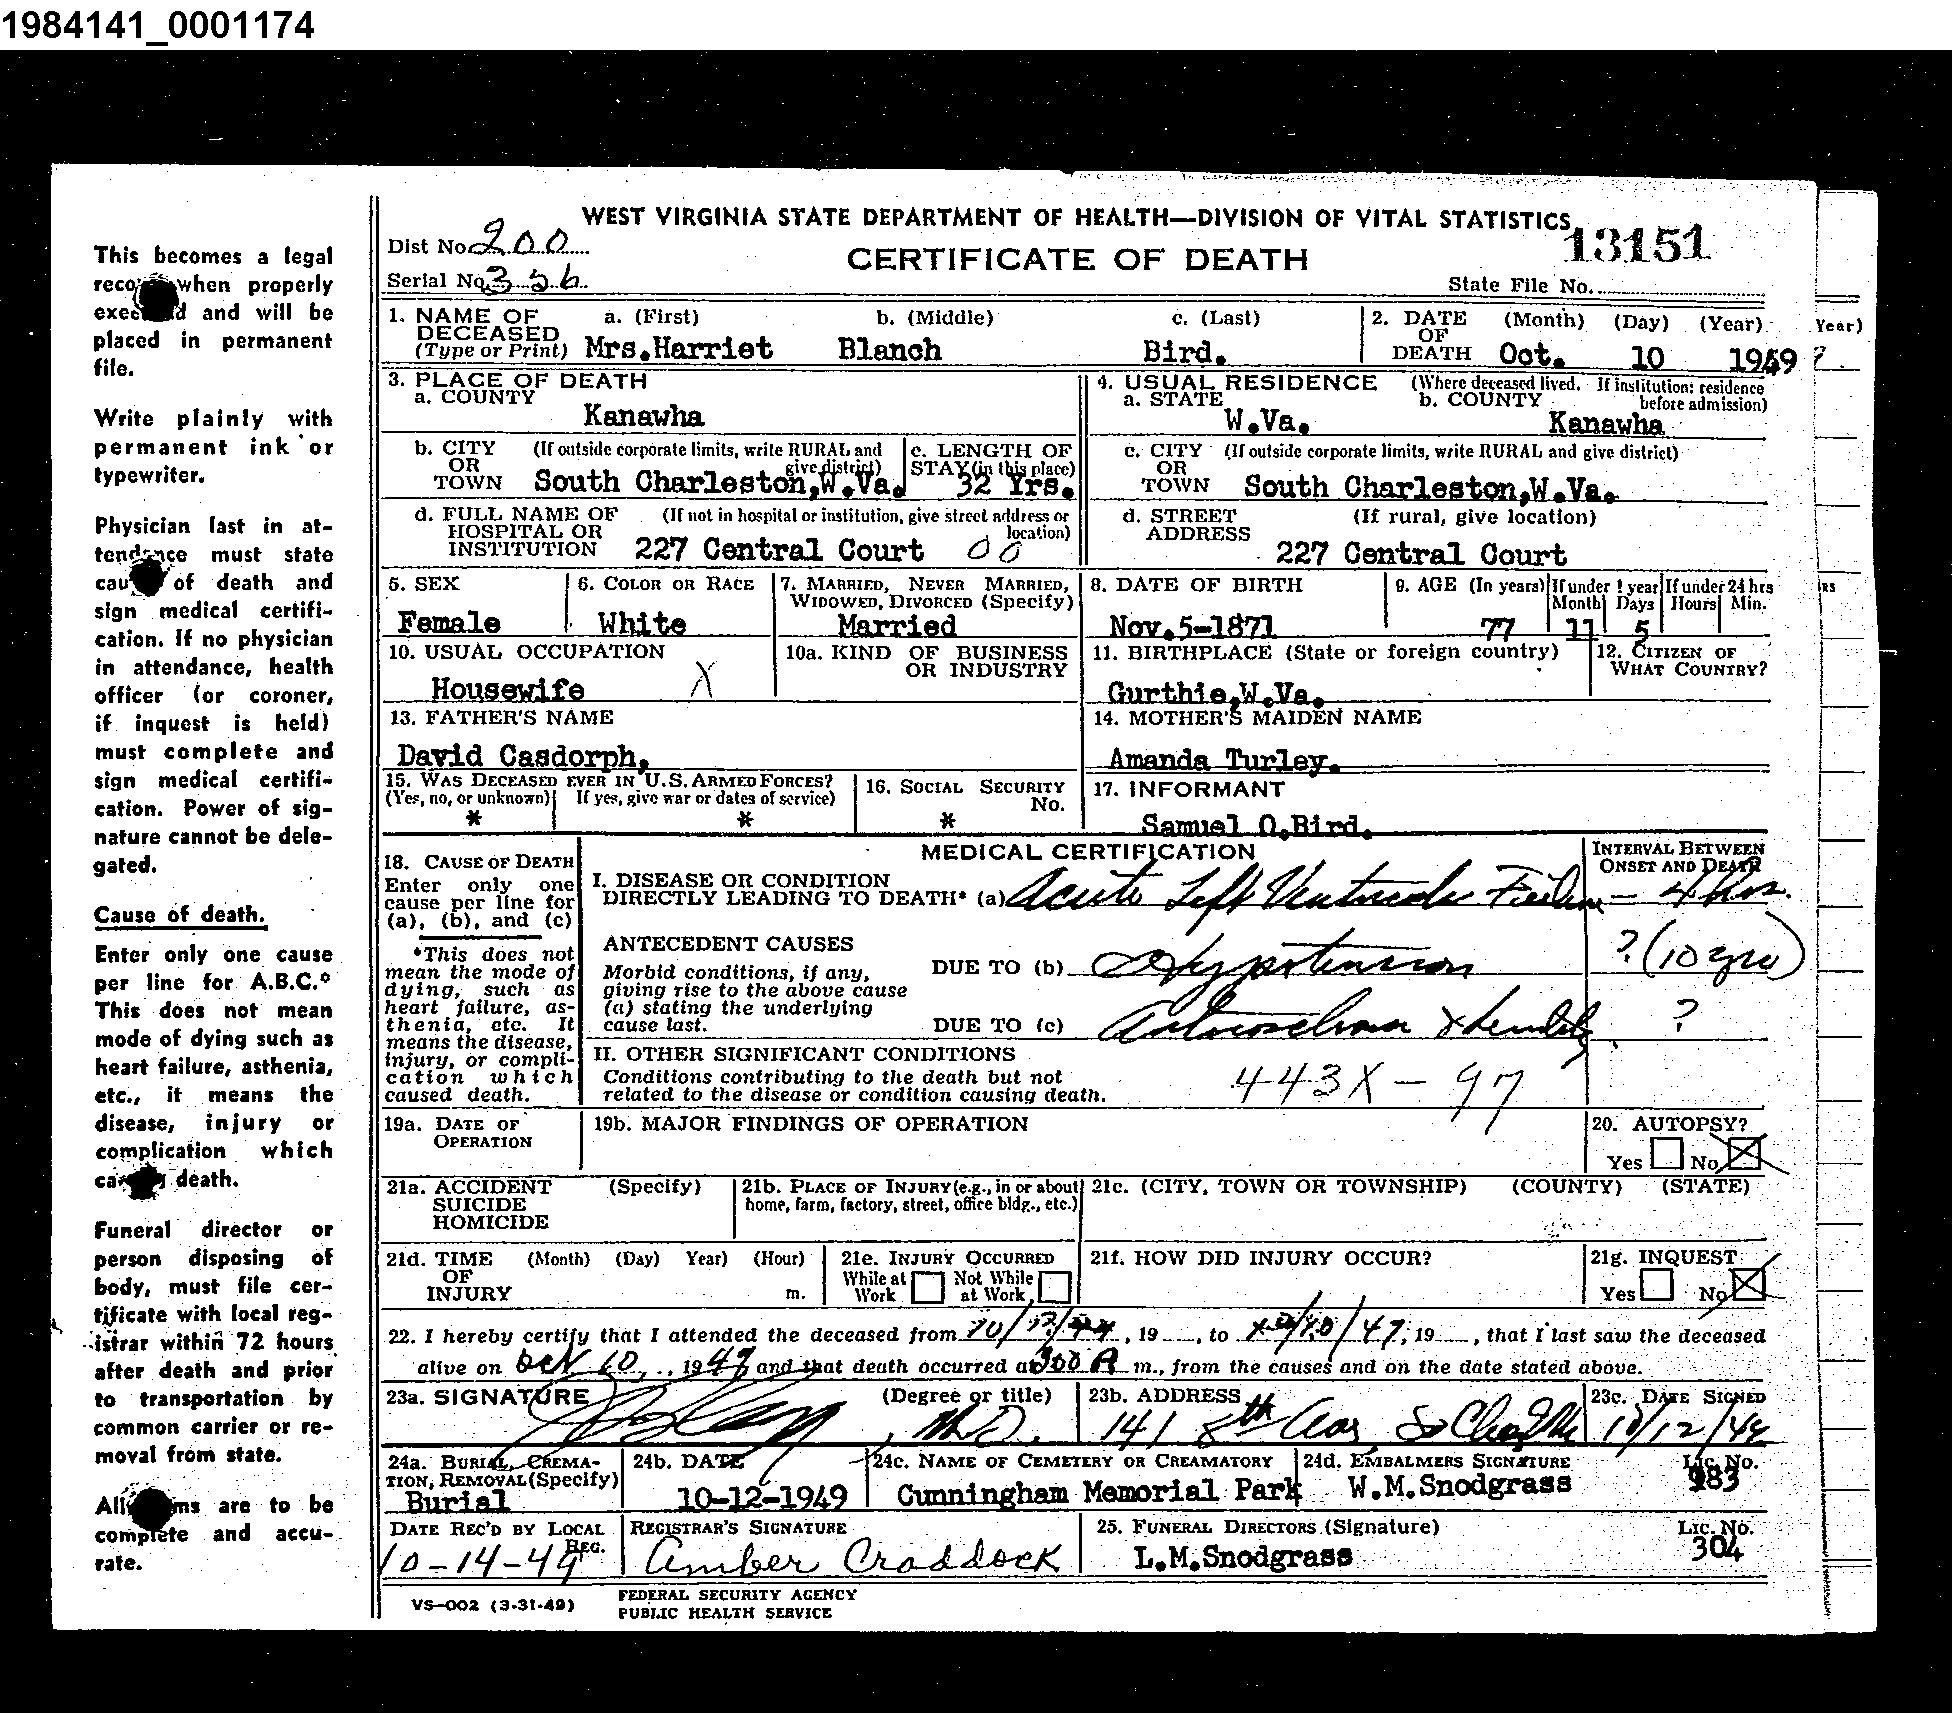 1984141_0001174
WEST VIRGINIA STATE DEPARTMENT OF HEALTH—DIVISION OF VITAL STATISTICS
Dist No. 200
CERTIFICATE OF DEATH
13151
Serial No. 356
State File No.
1. NAME OF DECEASED (Type or Print)
a. (First) Mrs.Harriet
b. (Middle) Blanch
c. (Last) Bird.
2. DATE OF DEATH (Month) (Day) (Year) Oct. 10 1949
Year)
3. PLACE OF DEATH
a. COUNTY
Kanawha
4. USUAL RESIDENCE (Where deceased lived. If institution: residence before admission)
a. STATE W.Va.
b. COUNTY Kanawha
b. CITY OR TOWN (If outside corporate limits, write RURAL and give district)
South Charleston,W.Va.
c. LENGTH OF STAY (in this place)
32 Yrs.
c. CITY OR TOWN (If outside corporate limits, write RURAL and give district)
South Charleston,W.Va.
d. FULL NAME OF HOSPITAL OR INSTITUTION (If not in hospital or institution, give street address or location)
227 Central Court 00
d. STREET ADDRESS (If rural, give location)
227 Central Court
5. SEX
Female
6. COLOR OR RACE
White
7. MARRIED, NEVER MARRIED, WIDOWED, DIVORCED (Specify)
Married
8. DATE OF BIRTH
Nov.5-1871
9. AGE (In years) 77
If under 1 year Month 11 Days 5
If under 24 hrs Hours Min.
RS
10. USUAL OCCUPATION
Housewife X
10a. KIND OF BUSINESS OR INDUSTRY
11. BIRTHPLACE (State or foreign country)
Gurthie,W.Va.
12. CITIZEN OF WHAT COUNTRY?
13. FATHER'S NAME
David Casdorph.
14. MOTHER'S MAIDEN NAME
Amanda Turley.
15. WAS DECEASED EVER IN U.S. ARMED FORCES?
(Yes, no, or unknown) If yes, give war or dates of service)
* *
16. SOCIAL SECURITY No.
*
17. INFORMANT
Samuel O.Bird.
MEDICAL CERTIFICATION
INTERVAL BETWEEN ONSET AND DEATH
18. CAUSE OF DEATH
Enter only one cause per line for (a), (b), and (c)
*This does not mean the mode of dying, such as heart failure, asthenia, etc. It means the disease, injury, or complication which caused death.
I. DISEASE OR CONDITION DIRECTLY LEADING TO DEATH* (a) Acute Left Ventricular Failure — 4 hrs.
ANTECEDENT CAUSES
Morbid conditions, if any, giving rise to the above cause (a) stating the underlying cause last.
DUE TO (b) Hypertension ? (10 yrs)
DUE TO (c) ?
II. OTHER SIGNIFICANT CONDITIONS
Conditions contributing to the death but not related to the disease or condition causing death.
443X - 97
19a. DATE OF OPERATION
19b. MAJOR FINDINGS OF OPERATION
20. AUTOPSY?
Yes No X
21a. ACCIDENT SUICIDE HOMICIDE (Specify)
21b. PLACE OF INJURY (e.g., in or about home, farm, factory, street, office bldg., etc.)
21c. (CITY, TOWN OR TOWNSHIP) (COUNTY) (STATE)
21d. TIME OF INJURY (Month) (Day) Year) (Hour) m.
21e. INJURY OCCURRED
While at Work Not While at Work
21f. HOW DID INJURY OCCUR?
21g. INQUEST
Yes No X
22. I hereby certify that I attended the deceased from , 19 , to , 19 , that I last saw the deceased
alive on Oct 10, 1949 and that death occurred at 300 A m., from the causes and on the date stated above.
23a. SIGNATURE (Degree or title)
M.D.
23b. ADDRESS
141 8th Ave
23c. DATE SIGNED
10/12/49
24a. BURIAL, CREMATION, REMOVAL (Specify)
Burial
24b. DATE
10-12-1949
24c. NAME OF CEMETERY OR CREAMATORY
Cunningham Memorial Park
24d. EMBALMERS SIGNATURE
W.M.Snodgrass
Lic. No.
983
DATE REC'D BY LOCAL REG.
10-14-49
REGISTRAR'S SIGNATURE
Amber Craddock
25. FUNERAL DIRECTORS (Signature)
L.M.Snodgrass
Lic. No.
304
VS-002 (3-31-49)
FEDERAL SECURITY AGENCY
PUBLIC HEALTH SERVICE
This becomes a legal
when properly
and will be
placed in permanent
file.
Write plainly with
permanent ink or
typewriter.
Physician last in at-
tendance must state
of death and
sign medical certifi-
cation. If no physician
in attendance, health
officer (or coroner,
if inquest is held)
must complete and
sign medical certifi-
cation. Power of sig-
nature cannot be dele-
gated.
Cause of death.
Enter only one cause
per line for A.B.C.*
This does not mean
mode of dying such as
heart failure, asthenia,
etc., it means the
disease, injury or
complication which
death.
Funeral director or
person disposing of
body, must file cer-
tificate with local reg-
istrar within 72 hours
after death and prior
to transportation by
common carrier or re-
moval from state.
are to be
complete and accu-
rate.